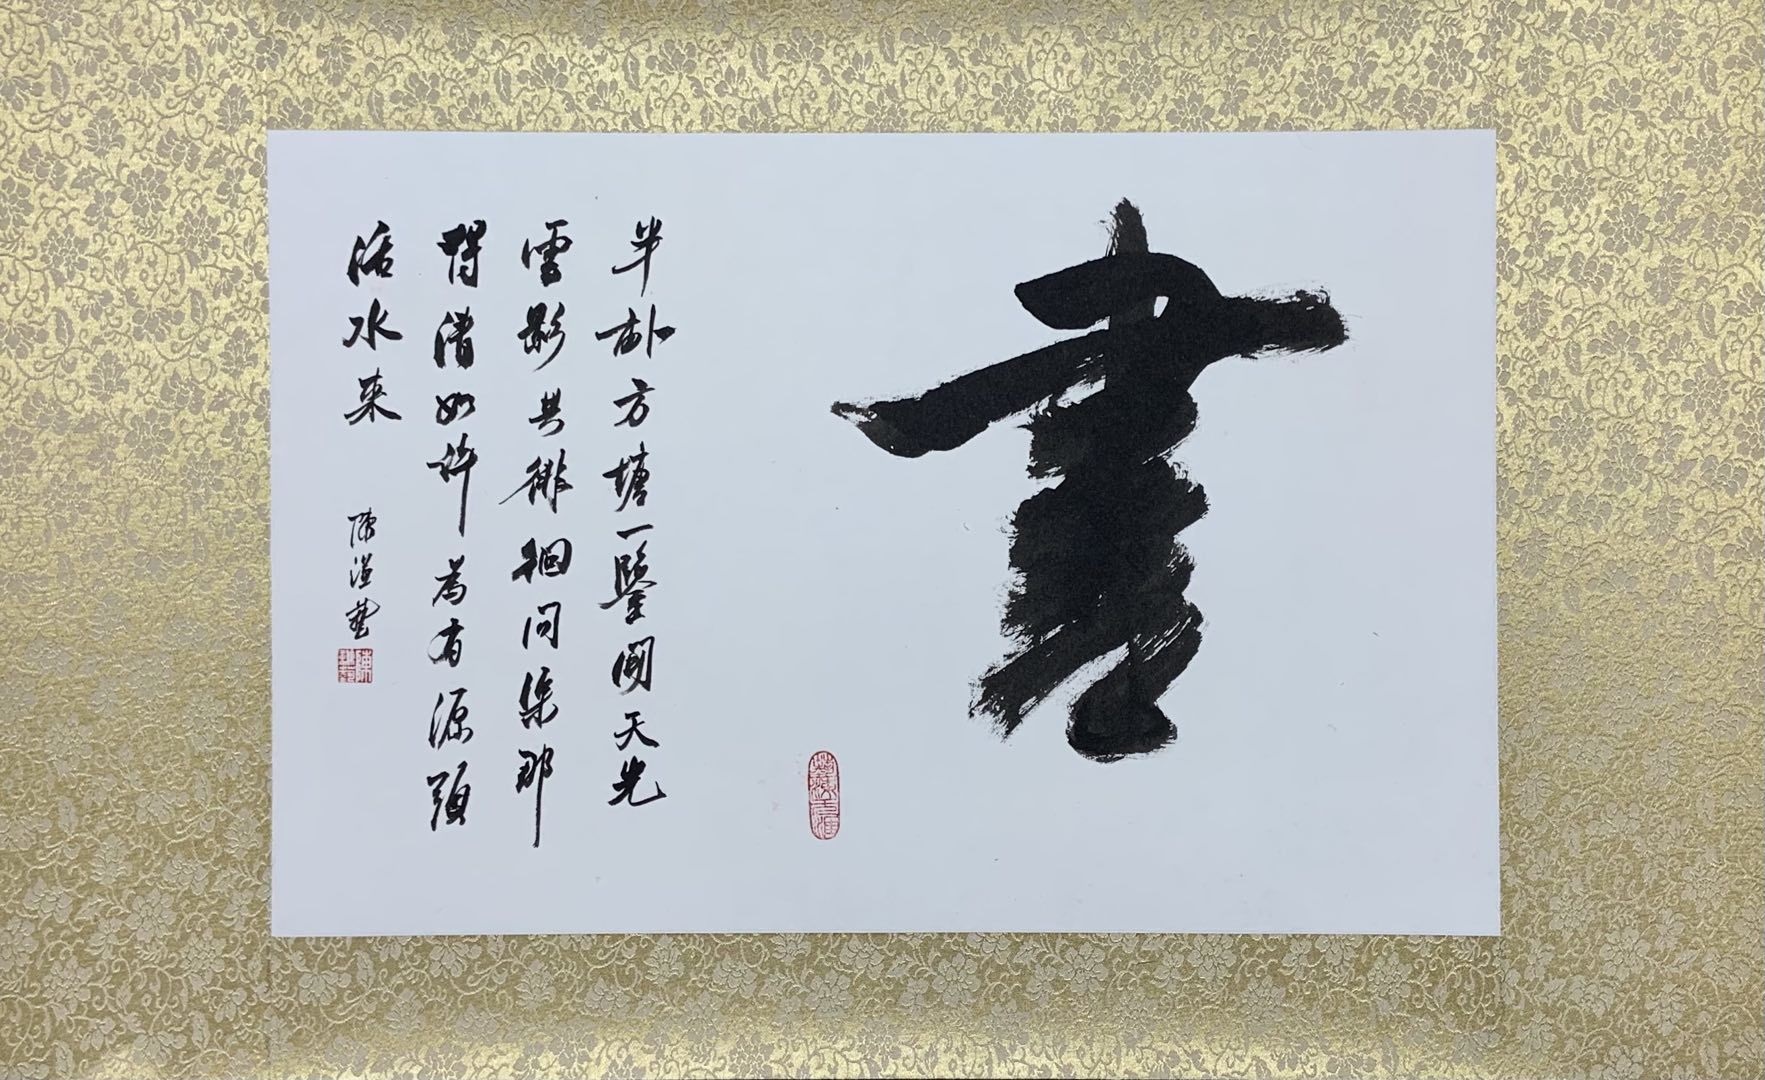 書
半畝方塘一鑒開天光
雲影共徘徊問渠那
得清如許為有源頭
活水來
陳漢藝